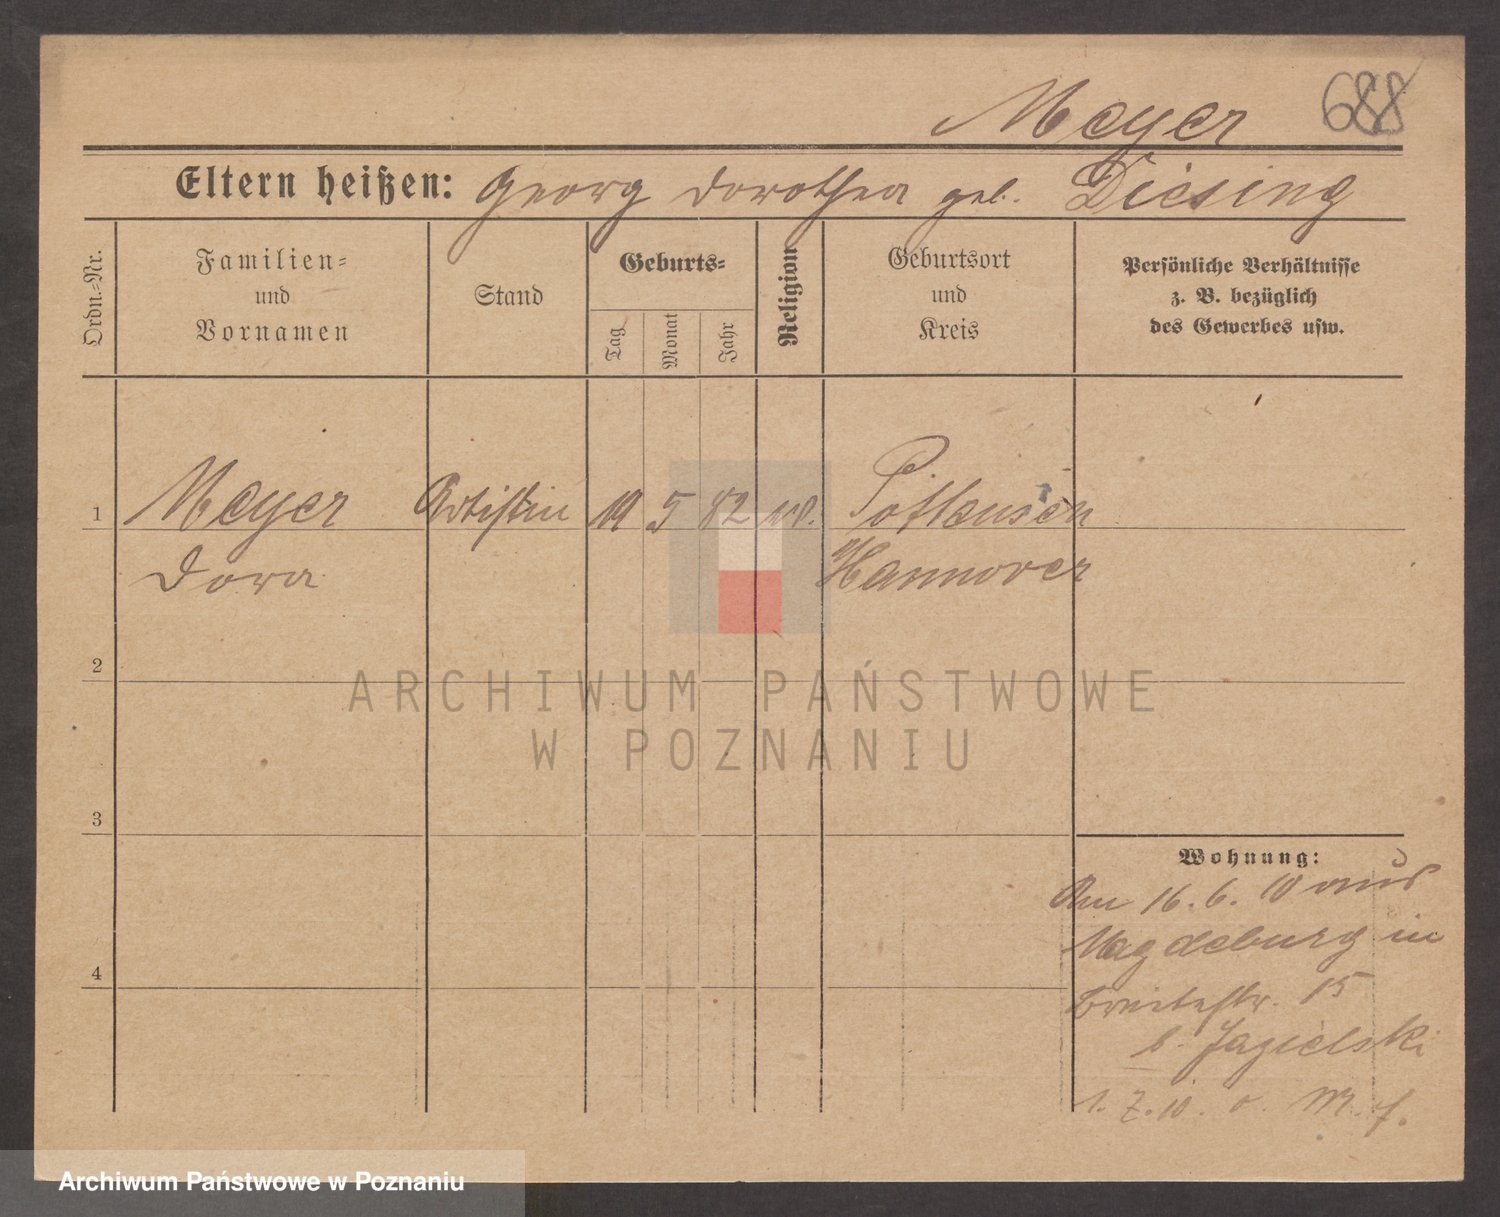 Meyer 688
Eltern heißen: Georg Dorothea geb. Diesing
Ordn.-Nr.
Familien-
und
Vornamen
Stand
Geburts-
Tag
Monat
Jahr
Religion
Geburtsort
und
Kreis
Persönliche Verhältnisse
z. B. bezüglich
des Gewerbes usw.
1 Meyer Artistin 19 5 82
Dora Hannover
2
3
4
Wohnung:
Am 16.6.10 aus
Magdeburg in
Breitestr. 15
b. Jagielski
ARCHIWUM PAŃSTWOWE
W POZNANIU
Archiwum Państwowe w Poznaniu